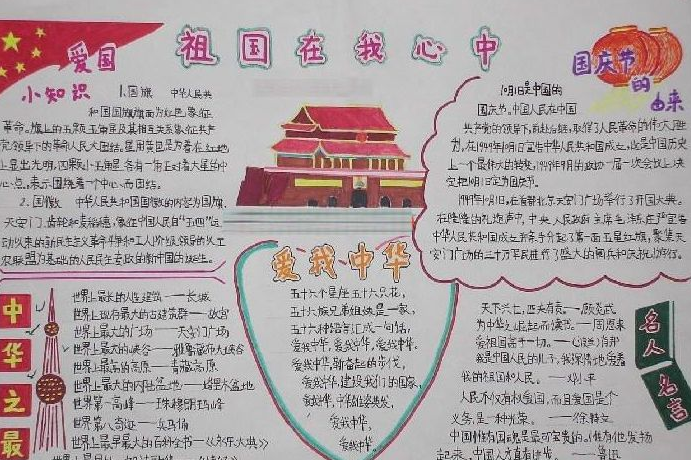 祖国在我心中
爱国
小知识
1.国旗 中华人民共
和国国旗旗面为红色,象征
革命。旗上的五颗五角星及其相互关系象征共产
党领导下的革命人民大团结。星用黄色是为着在红地
上显出光明,四颗小五角星各有一角正对着大星的中
心点,表示围绕着一个中心而团结。
2.国徽 中华人民共和国国徽的内容为国旗、
天安门、齿轮和麦稻穗,象征中国人民自“五四”运
动以来的新民主主义革命斗争和工人阶级领导的以工
农联盟为基础的人民民主专政的新中国的诞生。
国庆节
的
由来
10月1日是中国的
国庆节。中国人民在中国
共产党的领导下,前赴后继,取得了人民革命的伟大胜
利。在1949年10月1日宣告中华人民共和国成立,这是中国历史
上一个最伟大的转变,1949年9月的政协一届一次会议上决
定把10月1日定为国庆节。
1949年10月1日,在首都北京天安门广场举行了开国大典。
在隆隆的礼炮声中,中央人民政府主席毛泽东庄严宣告
中华人民共和国成立并亲手升起了第一面五星红旗。聚集天
安门广场的三十万军民进行了盛大的阅兵和庆祝游行。
爱我中华
五十六个星座五十六只花,
五十六族兄弟姐妹是一家,
五十六种语言汇成一句话,
爱我中华,爱我中华,爱我中华。
爱我中华,健奋起的步伐,
爱我中华,建设我们的国家,
爱我中华,
爱我中华,
爱我中华。
中华之最
世界上最长的人造建筑——长城
世界上现存最大的古建筑群——故宫
世界上最大的广场——天安门广场
世界上最大的峡谷——雅鲁藏布大峡谷
世界上最高的高原——青藏高原
世界上最大的内陆盆地——塔里木盆地
世界第一高峰——珠穆朗玛峰
世界八奇迹——兵马俑
世界上最早最大的百科全书——《永乐大典》
名人名言
天下兴亡,匹夫有责。——顾炎武
为中华之崛起而读书。——周恩来
爱祖国高于一切。——肖邦
我是中国人民的儿子,我深情地爱着
我的祖国和人民。——邓小平
人民不仅有权爱国,而且爱国是个
义务,是一种光荣。——徐特立